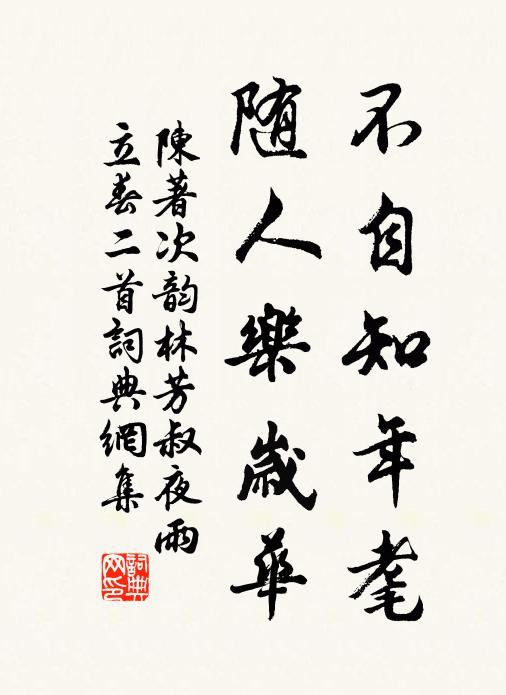 不自知年耄
随人樂歲華
陳著次韵林芳叔夜雨
立春二首詞典網集
詞典
网印